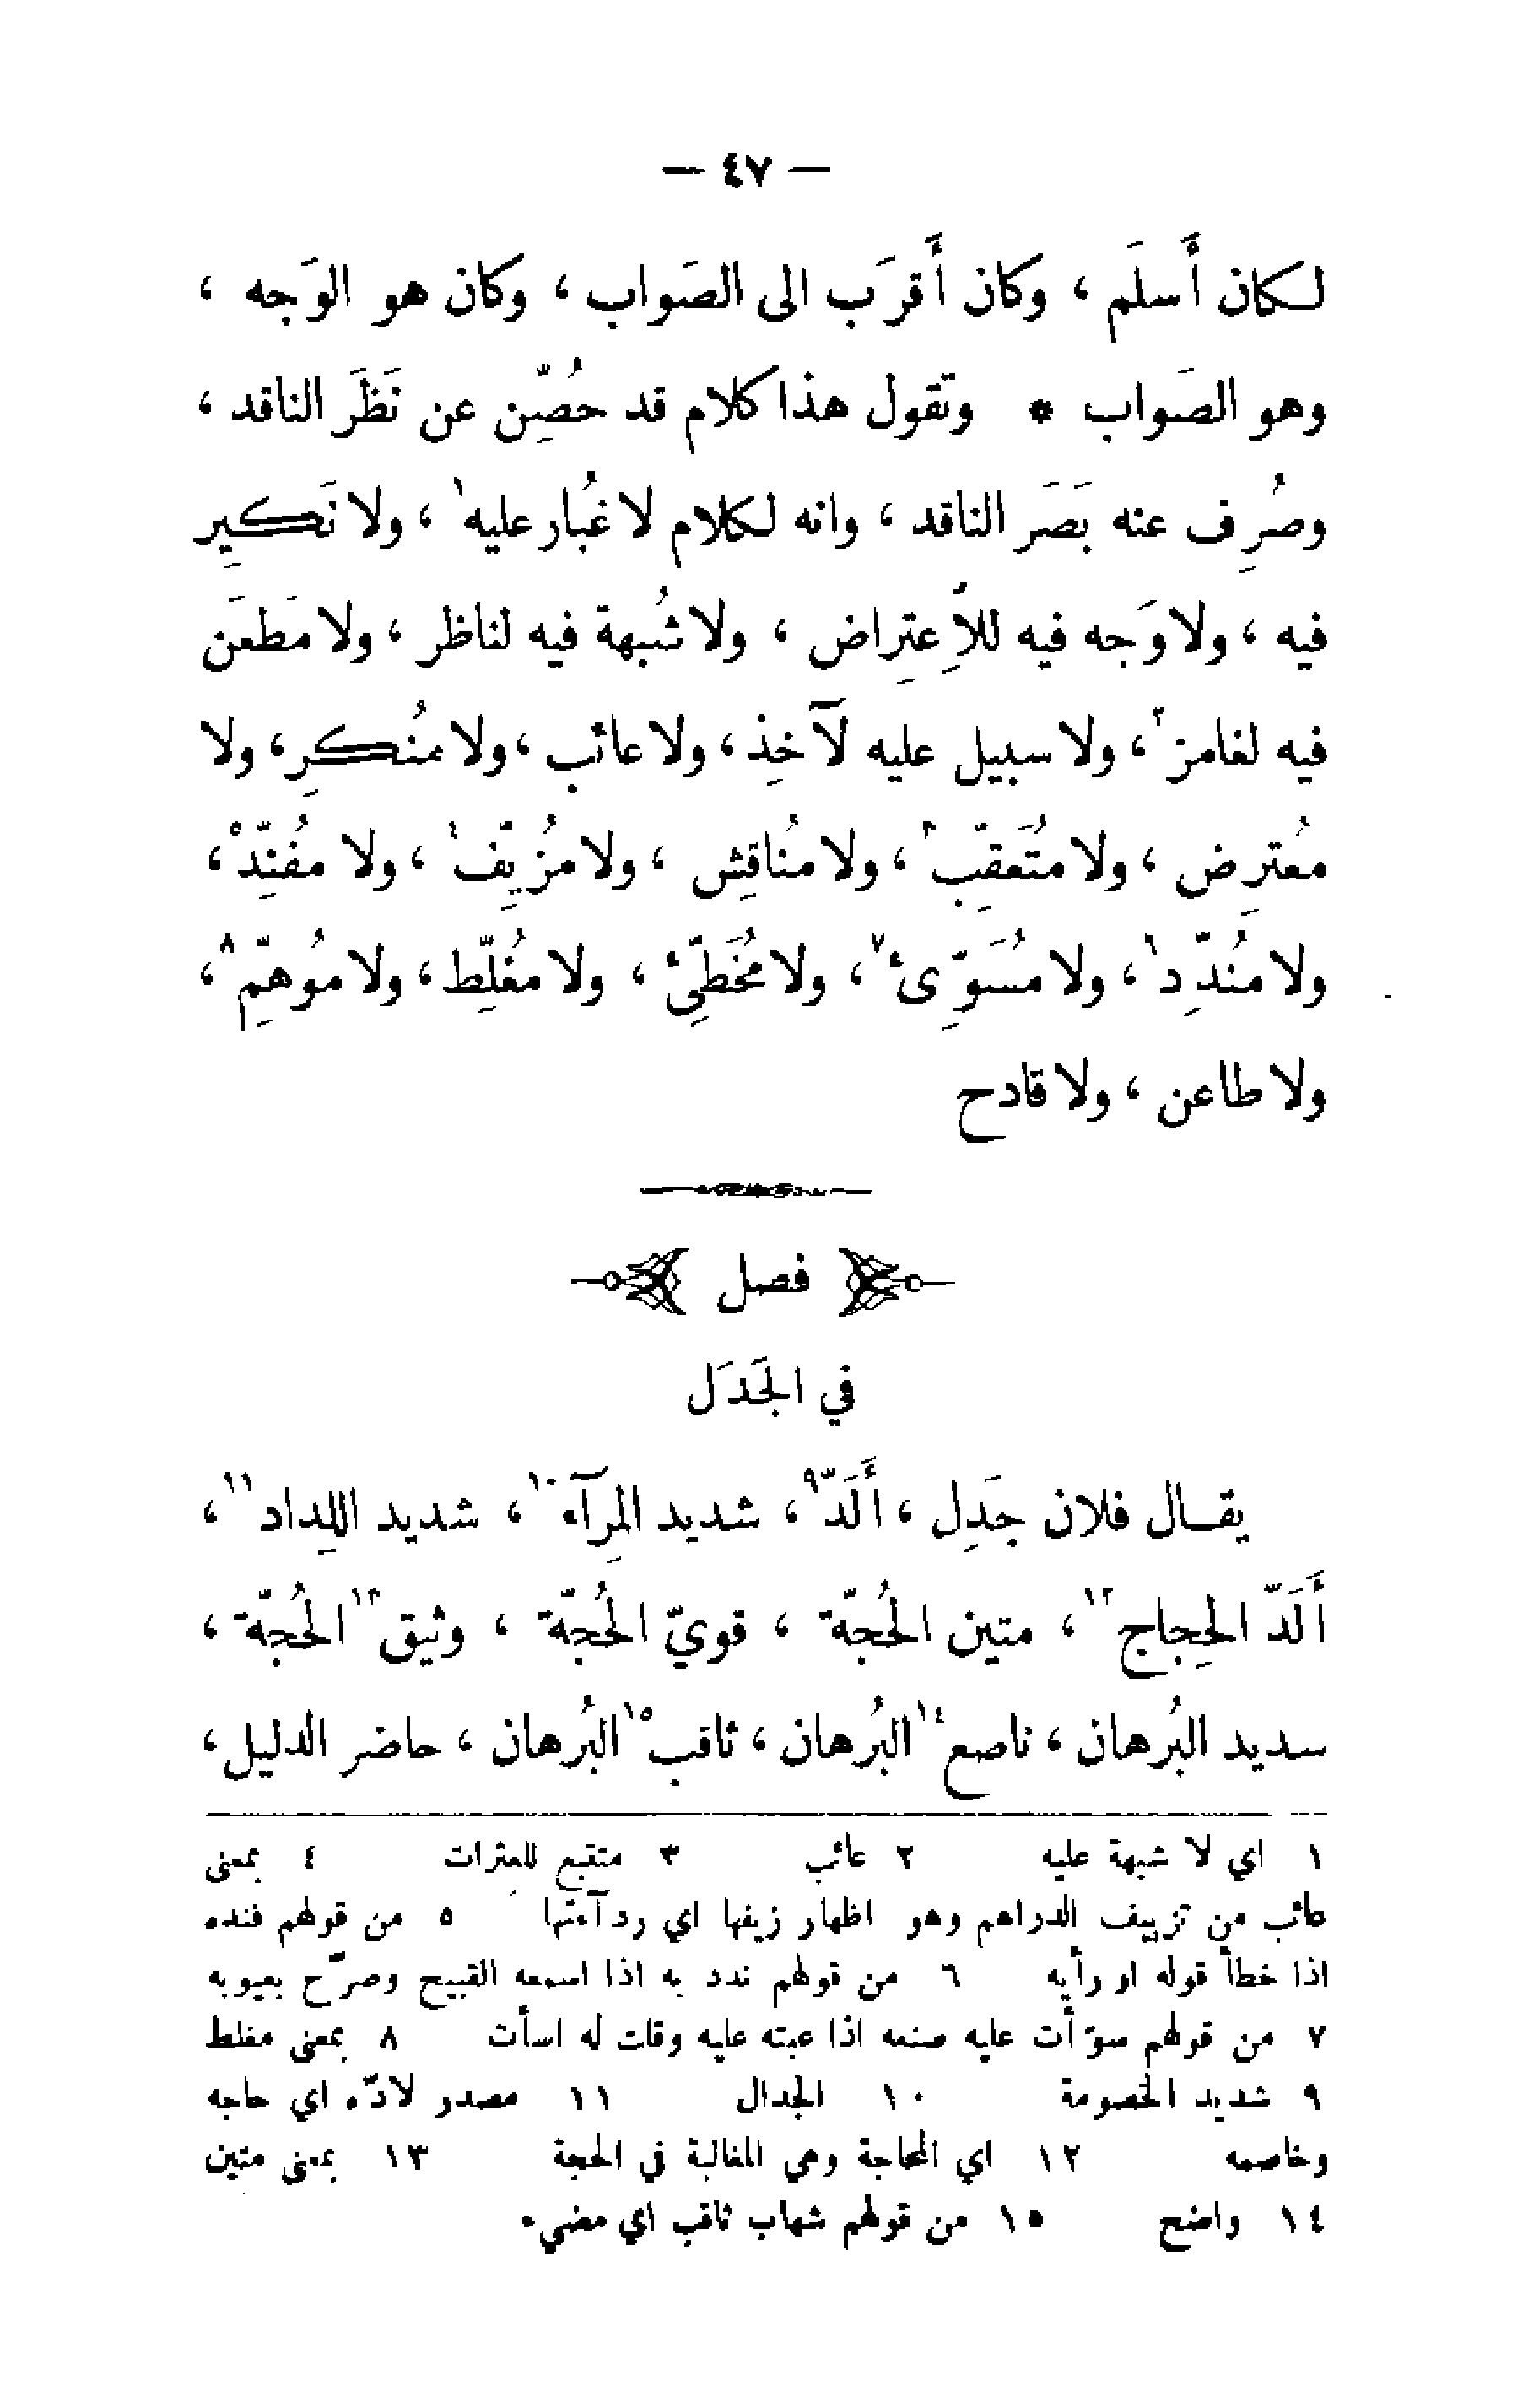 — ٤٧ —
لكان أَسلَم ، وكان أَقرَب الى الصَواب ، وكان هو الوَجه ،
وهو الصَواب * وتقول هذا كلام قد حُصِّن عن نَظَر الناقد ،
وصُرِف عنه بَصَر الناقد ، وانه لكلام لا غُبار عليه ١ ، ولا نَكِير
فيه ، ولا وَجه فيه للاِعتِراض ، ولا شُبهة فيه لناظر ، ولا مَطعَن
فيه لغامز ٢ ، ولا سبيل عليه لآخِذ ، ولا عائب ، ولا مُنكِر ، ولا
مُعترِض ، ولا مُتَعقِّب ٣ ، ولا مُناقِش ، ولا مُزيِّف ٤ ، ولا مُفنِّد ٥ ،
ولا مُندِّد ٦ ، ولا مُسَوِّئ ٧ ، ولا مُخَطِّئ ، ولا مُغلِّط ، ولا مُوهِّم ٨ ،
ولا طاعن ، ولا قادح
فصل
في الجَدَل
يقال فلان جَدِل ، أَلَدّ ٩ ، شديد المِرآء ١٠ ، شديد اللِداد ١١ ،
أَلَدّ الحِجاج ١٢ ، متين الحُجّة ، قويّ الحُجّة ، وثيق ١٣ الحُجّة ،
سديد البُرهان ، ناصع ١٤ البُرهان ، ثاقب ١٥ البُرهان ، حاضر الدليل ،
١ اي لا شبهة عليه ٢ عائب ٣ متتبع للعثرات ٤ بمعنى
عائب من تزييف الدراهم وهو اظهار زيفها اي ردآءتها ٥ من قولهم فنده
اذا خطأ قوله او رأيه ٦ من قولهم ندد به اذا اسمعه القبيح وصرّح بعيوبه
٧ من قولهم سوّأت عليه صنعه اذا عبته عليه وقلت له اسأت ٨ بمعنى مغلط
٩ شديد الخصومة ١٠ الجدال ١١ مصدر لادّه اي حاجه
وخاصمه ١٢ اي المحاجة وهي المغالبة في الحجة ١٣ بمعنى متين
١٤ واضح ١٥ من قولهم شهاب ثاقب اي مضيء